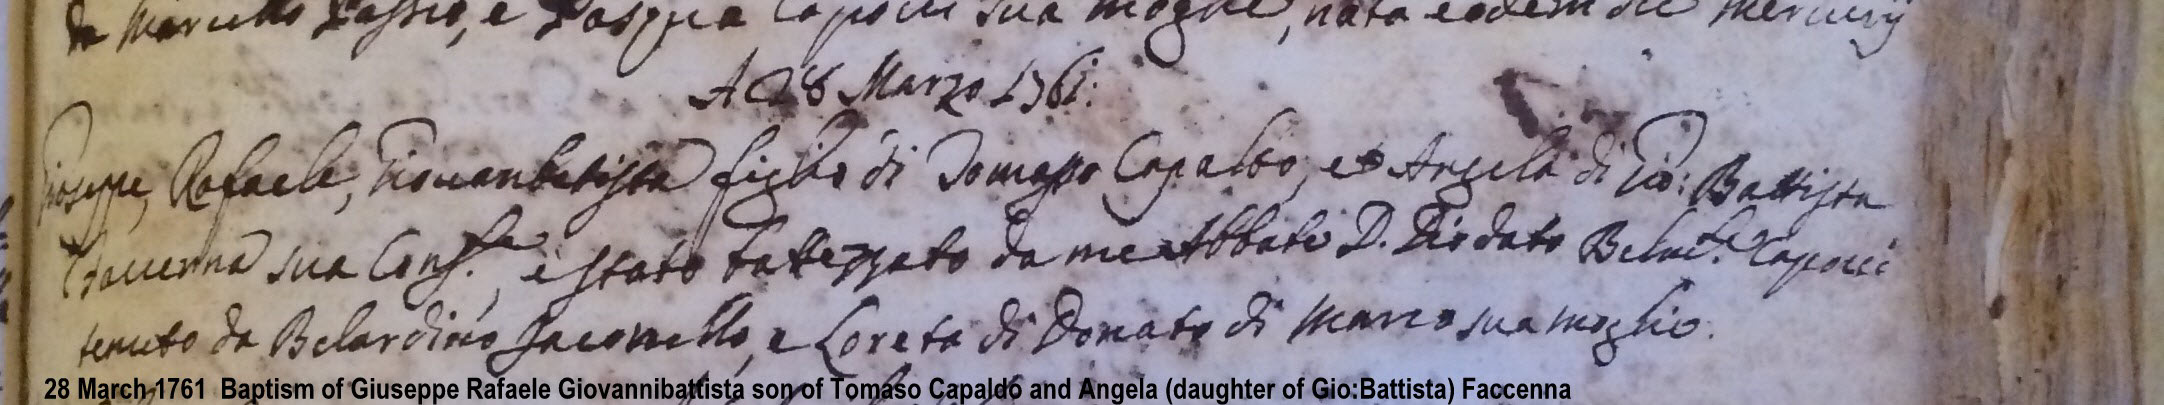 da Marcello Passio, e Pasqua Capocci sua moglie, nata eodem die Mercurij
A 28 Marzo 1761:
Gioseppe, Rafaele, Giovanbatista figlio di Tomasso Capaldo, ed Angela di Gio: Battista
Faccenna sua Cons.e, è stato battezzato da me Abbate D. Diodato Capocci
tenuto da Belardino Iaconello, e Loreta di Donato di Marco sua moglie.
28 March 1761 Baptism of Giuseppe Rafaele Giovannibattista son of Tomaso Capaldo and Angela (daughter of Gio:Battista) Faccenna